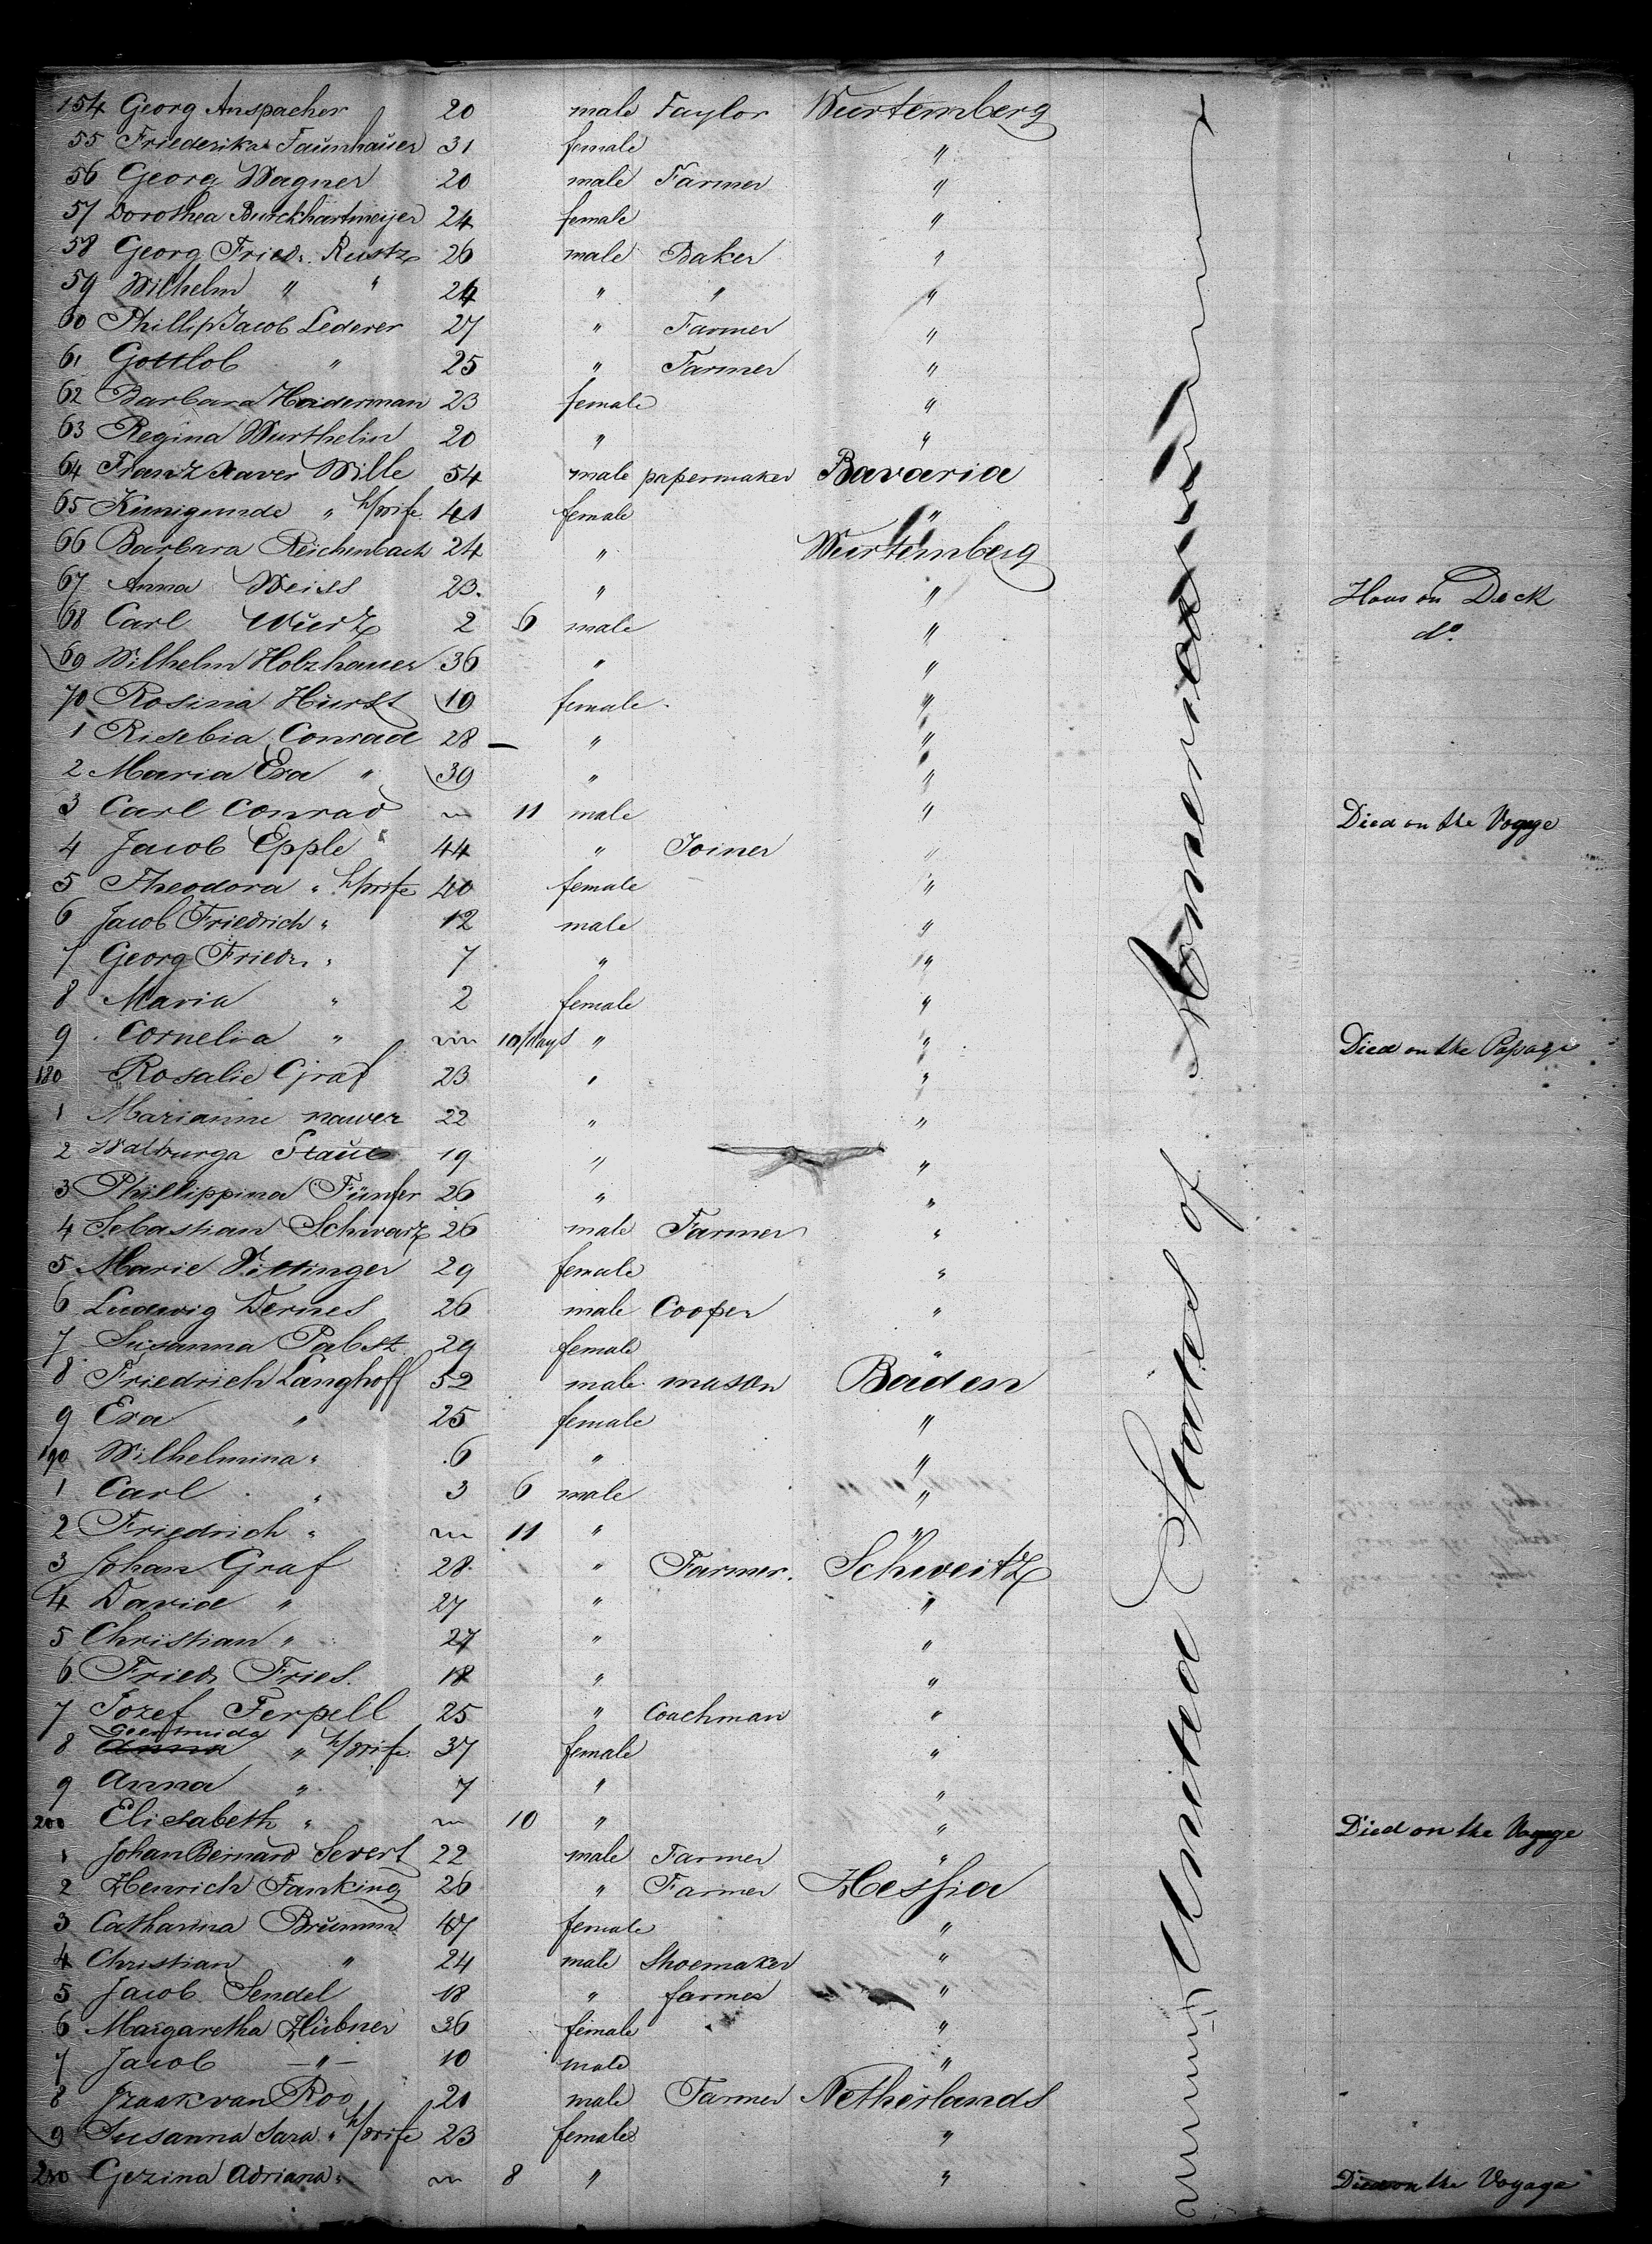 154 Georg Anspacher 20 male Taylor Wurtemberg
55 Friederika Taunhauser 31 female "
56 Georg Wagner 20 male Farmer "
57 Dorothea Burckhartmeijer 24 female "
58 Georg Friedr. Rustz 26 male Baker "
59 Wilhelm " " 24 " " "
60 Phillip Jacob Lederer 27 " Farmer "
61 Gottlob " 25 " Farmer "
62 Barbara Haiderman 23 female "
63 Regina Wurthelin 20 " "
64 Franz Xaver Wille 54 male papermaker Bavaria
65 Kunigunde " h/wife 41 female "
66 Barbara Reichenbach 24 " Wurtemberg
67 Anna Weiss 23. " " Hous on Deck
68 Carl Würz 2 6 male " do
69 Wilhelm Holzhauer 36 " "
70 Rosina Hürst 19 female "
1 Risebia Conrad 28 " "
2 Maria Eva " 39 " "
3 Carl Conrad 11 male " Died on the Vogage
4 Jacob Epple 44 " Joiner "
5 Theodora " h/wife 40 female "
6 Jacob Friedrich " 12 male "
7 Georg Friedr. " 7 " "
8 Maria " 2 female "
9 Cornelia " 10/days " " Died on the Passage
180 Rosalie Graf 23 " "
1 Marianne nawer 22 " "
2 Walburga 19 " "
3 Phillippina Fünfer 26 " "
4 Sebastian Schwarz 26 male Farmer "
5 Marie Vittinger 29 female "
6 Ludwig Wernes 26 male Cooper "
7 Susanna Pabst 29 female "
8 Friedrich Langhoff 52 male mason Baden
9 Eva " 25 female "
190 Wilhelmina " 6 " "
1 Carl " 3 6 male "
2 Friedrich " 11 " "
3 Johan Graf 28 " Farmer. Schweitz
4 David " 27 " "
5 Christian " 27 " "
6 Friedr Fries. 18 " "
7 Jozef Ferpell 25 " Coachman "
Geertruida
8 Anna " h/wife 37 female "
9 Anna " 7 " "
200 Elisabeth " 10 " " Died on the Voyage
1 Johan Bernard Severt 22 male Farmer "
2 Henrich Fanking 26 " Farmer Hessia
3 Catharina Brumm 47 female "
4 Christian " 24 male Shoemaker "
5 Jacob Sendel 18 " farmer "
6 Margaretha Hübner 36 female "
7 Jacob —"— 10 male "
8 Izaak van Roo 21 male Farmer Netherlands
9 Susanna Sara " h/wife 23 female "
210 Gezina Adriana " 8 " " Died on the Voyage
United States of America